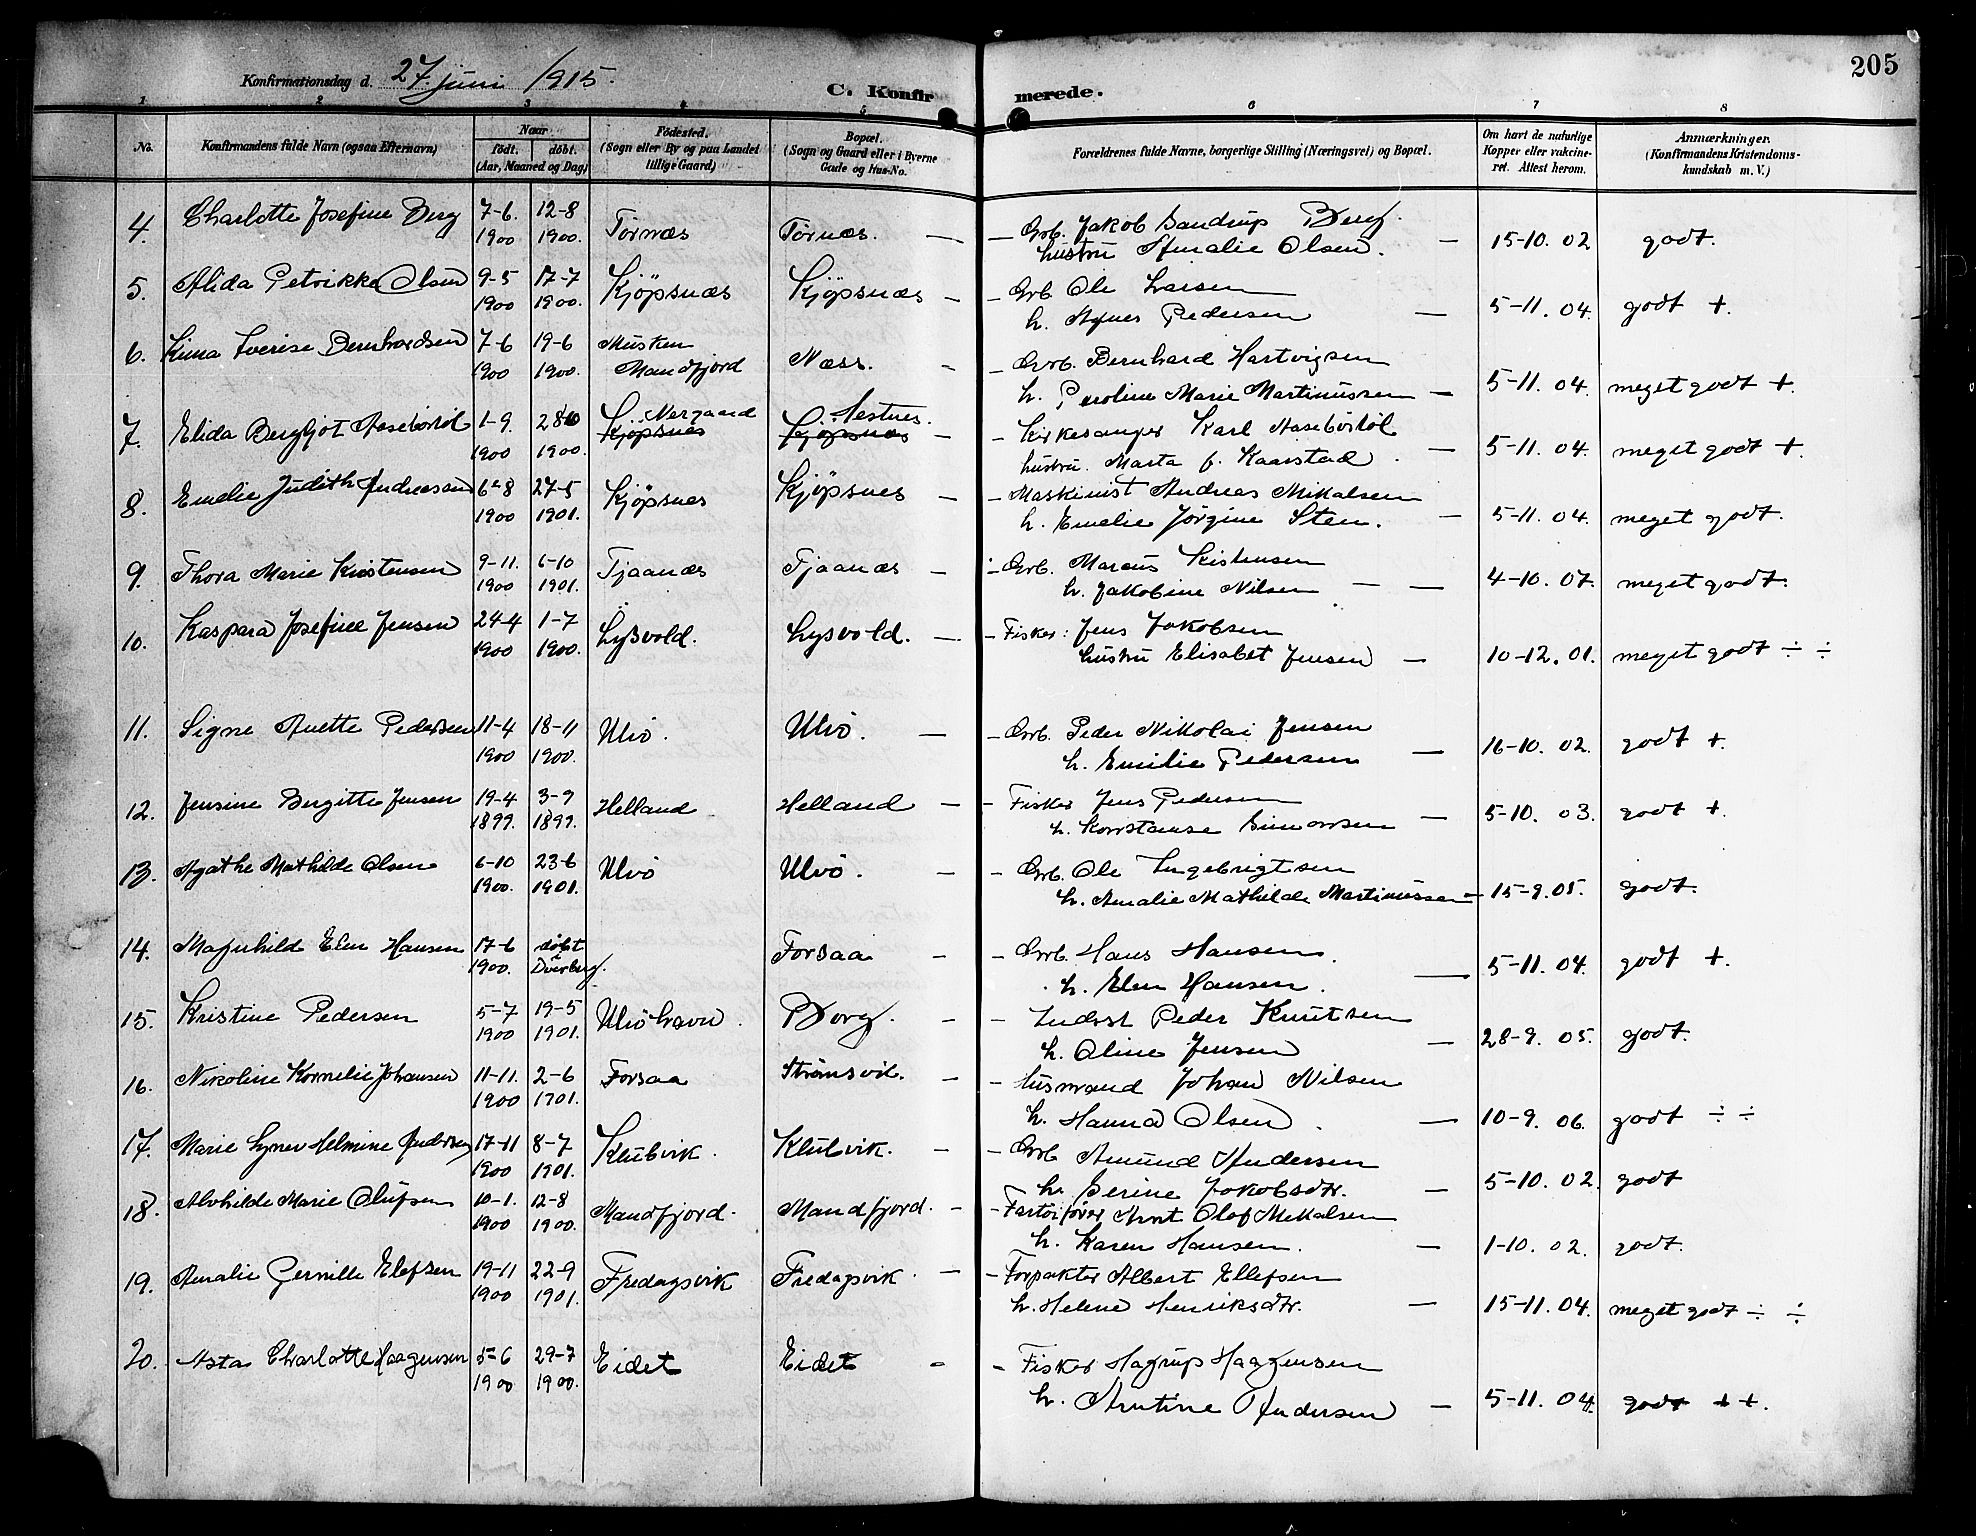 205
Konfirmationsdag d. 27. juni 1915.
C. Konfirmerede.
1 2 3 4 5 6 7 8
No. Konfirmandens fulde Navn (ogsaa Efternavn) Naar født. døbt. (Aar, Maaned og Dag) Fødested. (Sogn eller By og paa Landet tillige Gaard) Bopæl. (Sogn og Gaard eller i Byerne Gade og Hus-No. Forældrenes fulde Navne, borgerlige Stilling (Næringsvei) og Bopæl. Om havt de naturlige Kopper eller vakcineret. Attest herom. Anmærkninger. (Konfirmandens Kristendomskundskab m. V.)
4. Charlotte Josefine Berg 7-6. 12-8 Grb. Jakob Sandrup Berg.
1900 1900. Tørnæs Tørnæs. — — hustru Amalie Olsen. — 15-10. 02 godt.
5. Alida Petrikke Olsen 9-5 17-7 Kjöpsnæs Kjöpsnæs — — Grb. Ole Larsen
1900 1900. h. Agnes Pedersen — 5-11. 04. godt +.
6. Lina Iverise Bernhardsen 7-6 19-6 Musken Næss. — Grb. Bernhard Hartvigsen
1900 1900. Mandfjord h. Paroline Marie Martinussen — 5-11. 04. meget godt +.
7. Elida Bergljot Aasebøstöl 1-9. 28-10 Nergaard Sestnes. — — Kirkesanger Karl Aasebøstöl
1900 1900. Kjöpsnes Kjöpsnæs hustru. Marta f. Kaarstad. — 5-11. 04. meget godt +.
8. Emelie Judith Andreasen 6-8 27-5 Kjöpsnes Kjöpsnes — — Maskinist Andreas Mikalsen
1900 1901. h. Emelie Jörgine Sten. — 5-11. 04. meget godt.
9. Thora Marie Kristensen 9-11. 6-10 Tjaanæs Tjaanæs — — Grb. Marcus Kistensen
1900 1901. h. Jakobine Nilsen — — 4-10. 07. meget godt.
10. Kaspara Josefine Jensen 24-4 1-7 Lysvold. Lysvold. — — Fisker: Jens Jakobsen
1900 1900. hustru Elisabet Jensen — 10-12. 01. meget godt ÷ ÷
11. Signe Anette Pedersen 11-4 18-11 Ulvö. Ulvö. — — Grb. Peder Nikolai Jensen
1900 1900. h. Emilie Pedersen — 16-10. 02. godt +.
12. Jensine Bergitte Jensen 19-4 3-9 Helland Helland — — Fisker Jens Pedersen
1899. 1899. h. Konstanse Simonsen — 5-10. 03. godt +.
13. Agathe Mathilde Olsen 6-10 23-6 Ulvö Ulvö. — — Grb. Ole Ingebrigtsen
1900. 1901. h. Amalie Mathilde Martinussen — 15-9. 05. godt.
14. Magnhild Elen Hansen 17-6 døbt Forsaa — — Grb. Hans Hansen.
1900. i Dverberg. h. Elen Hansen. — 5-11. 04. godt +.
15. Kristine Pedersen 5-7 19-5 Ulvö havn. Borg. — — Inderst Peder Knutsen
1900 1901. h. Oline Jensen — 28-9. 05. godt.
16. Nikoline Kornelie Johansen 11-11. 2-6 Forsaa Strömsvik. — — Husmand Johan Nilsen
1900 1901. h. Hanna Olsen. — 10-9. 06. godt ÷ ÷
17. Marie Helmine Andersen 17-11 8-7 Klubvik. Klubvik. — — Grb. Amund Andersen
1900 1901. h. Serine Jakobsdtr. — 5-10. 02. godt
18. Alvhilde Marie Olufsen 10-1. 12-8 Mandfjord. Mandfjord. — — Fartöifører Arnt Olof Mikalsen
1900 1900. h. Karen Hansen. — 1-10. 02. godt.
19. Amalie Elefsen 19-11 22-9 Fredagsvik Fredagsvik. — — Forpakter Albert Ellefsen
1900 1901. h. Helene Henriksdtr. — 15-11. 04. meget godt ÷ ÷
20. Asta Charlotte Haagensen 5-6 29-7 Eidet Eidet — — Fisker Hagrup Haagensen
1900 1900. h. Antine Andersen — 5-11. 04. godt + +.